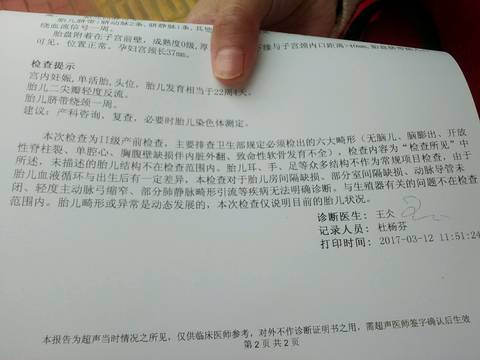 胎儿脐带:脐动脉2条,脐静脉1条,其
绕血流信号一周。
胎盘附着在子宫前壁,成熟度0级,厚
缘与子宫颈内口距离>40mm,
可见,位置正常。孕妇宫颈长37mm。
检查提示
宫内妊娠,单活胎,头位,胎儿发育相当于22周4天。
胎儿二尖瓣轻度反流。
胎儿脐带绕颈一周。
建议:产科咨询、复查,必要时胎儿染色体测定。
本次检查为II级产前检查,主要排查卫生部规定必须检出的六大畸形(无脑儿、脑膨出、开放
性脊柱裂、单腔心、胸腹壁缺损伴内脏外翻、致命性软骨发育不全),检查内容为“检查所见”中
所述,未描述的胎儿结构不在检查范围内。胎儿耳、手、足等众多结构不作为常规项目检查,由于
胎儿血液循环与出生后有一定差异,本检查对于胎儿房间隔缺损、部分室间隔缺损、动脉导管未
闭、轻度主动脉弓缩窄、部分肺静脉畸形引流等疾病无法明确诊断。与生殖器有关的问题不在检查
范围内。胎儿畸形或异常是动态发展的,本次检查仅说明目前的胎儿状况。
诊断医生:王尖
记录人员:杜杨芬
打印时间:2017-03-12 11:51:24
本报告为超声当时情况之所见,仅供临床医师参考,对外不作诊断证明书之用,需超声医师签字确认后生效
第2页共2页